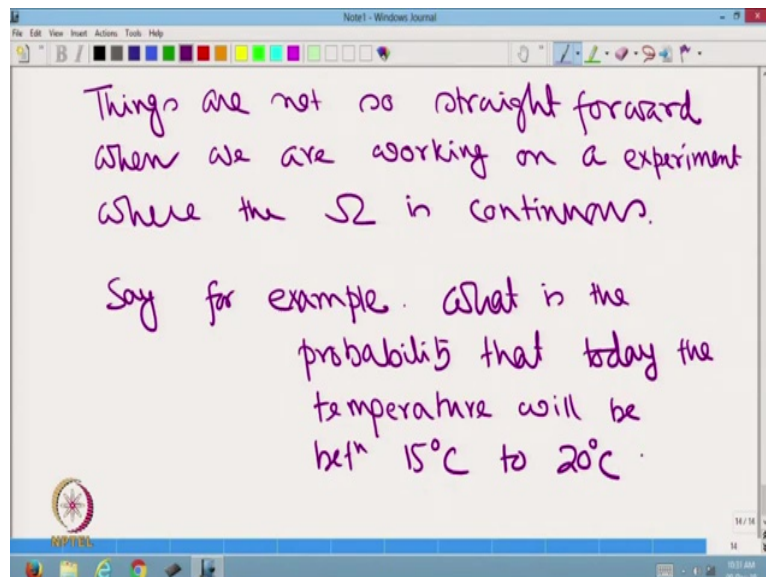 Note1 - Windows Journal
File Edit View Insert Actions Tools Help
B I
Things are not so straight forward
when we are working on a experiment
where the Ω is continuous.
Say for example. What is the
probability that today the
temperature will be
betⁿ 15°C to 20°C.
NPTEL
14 / 14
14
10:31 AM